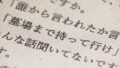 「誰から言われたか言
「墓場まで持って行け」
んな話聞いてないです